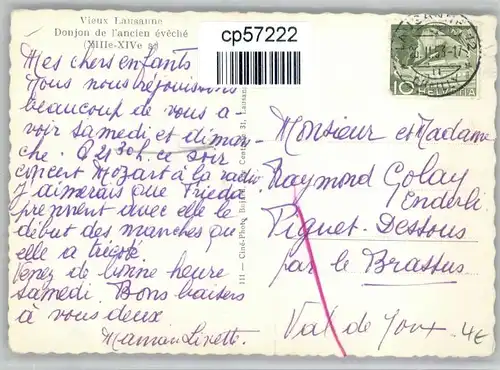 Vieux Lausanne
Donjon de l'ancien évêché
(XIIIe-XIVe s.)
cp57222
10 HELVETIA
Mes chers enfants
Nous nous réjouissons
beaucoup de vous a-
voir samedi et diman-
che. A 21 30 h. ce soir
concert Mozart à la radio
J'aimerais que Frieda
prennent avec elle le
début des manches que
elle a tricoté.
Venez de bonne heure
samedi. Bons baisers
à vous deux
Maman Linette.
111 — Ciné-Photo Lausanne
Monsieur et Madame
Raymond Golay
Enderli
Piguet-Dessous
par le Brassus
Val de Joux
4€